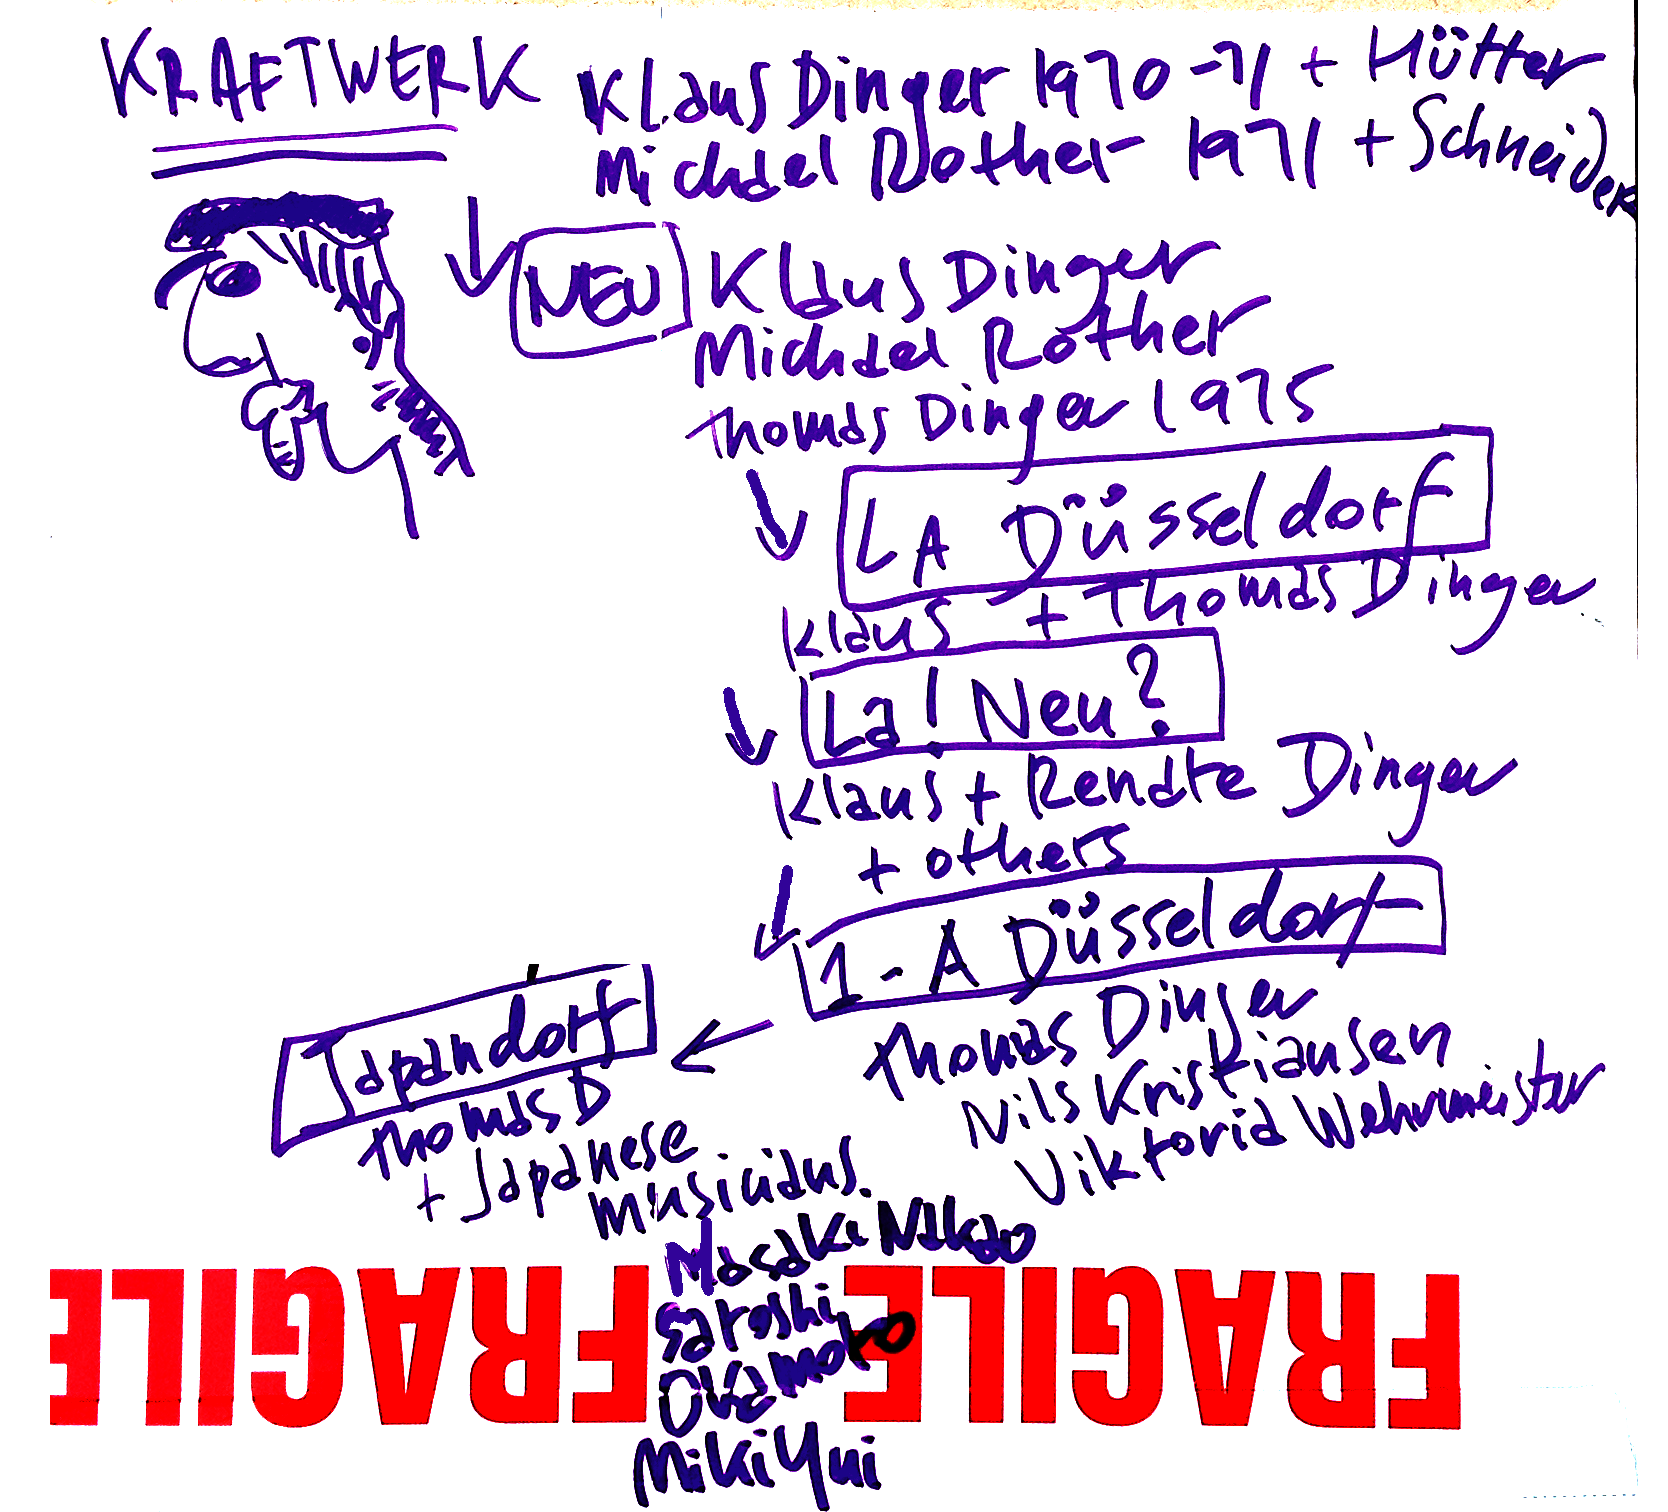 KRAFTWERK Klaus Dinger 1970-71 + Hütter
Michael Rother 1971 + Schneider
NEU Klaus Dinger
Michael Rother
Thomas Dinger 1975
LA Düsseldorf
Klaus + Thomas Dinger
La! Neu?
Klaus + Renate Dinger
+ others
1-A Düsseldorf
Thomas Dinger
Nils Kristiansen
Viktoria Wehrmeister
Japandorf
Thomas D
+ Japanese
musicians.
Masaki Nakao
Satoshi
Okamoto
Miki Yui
FRAGILE FRAGILE